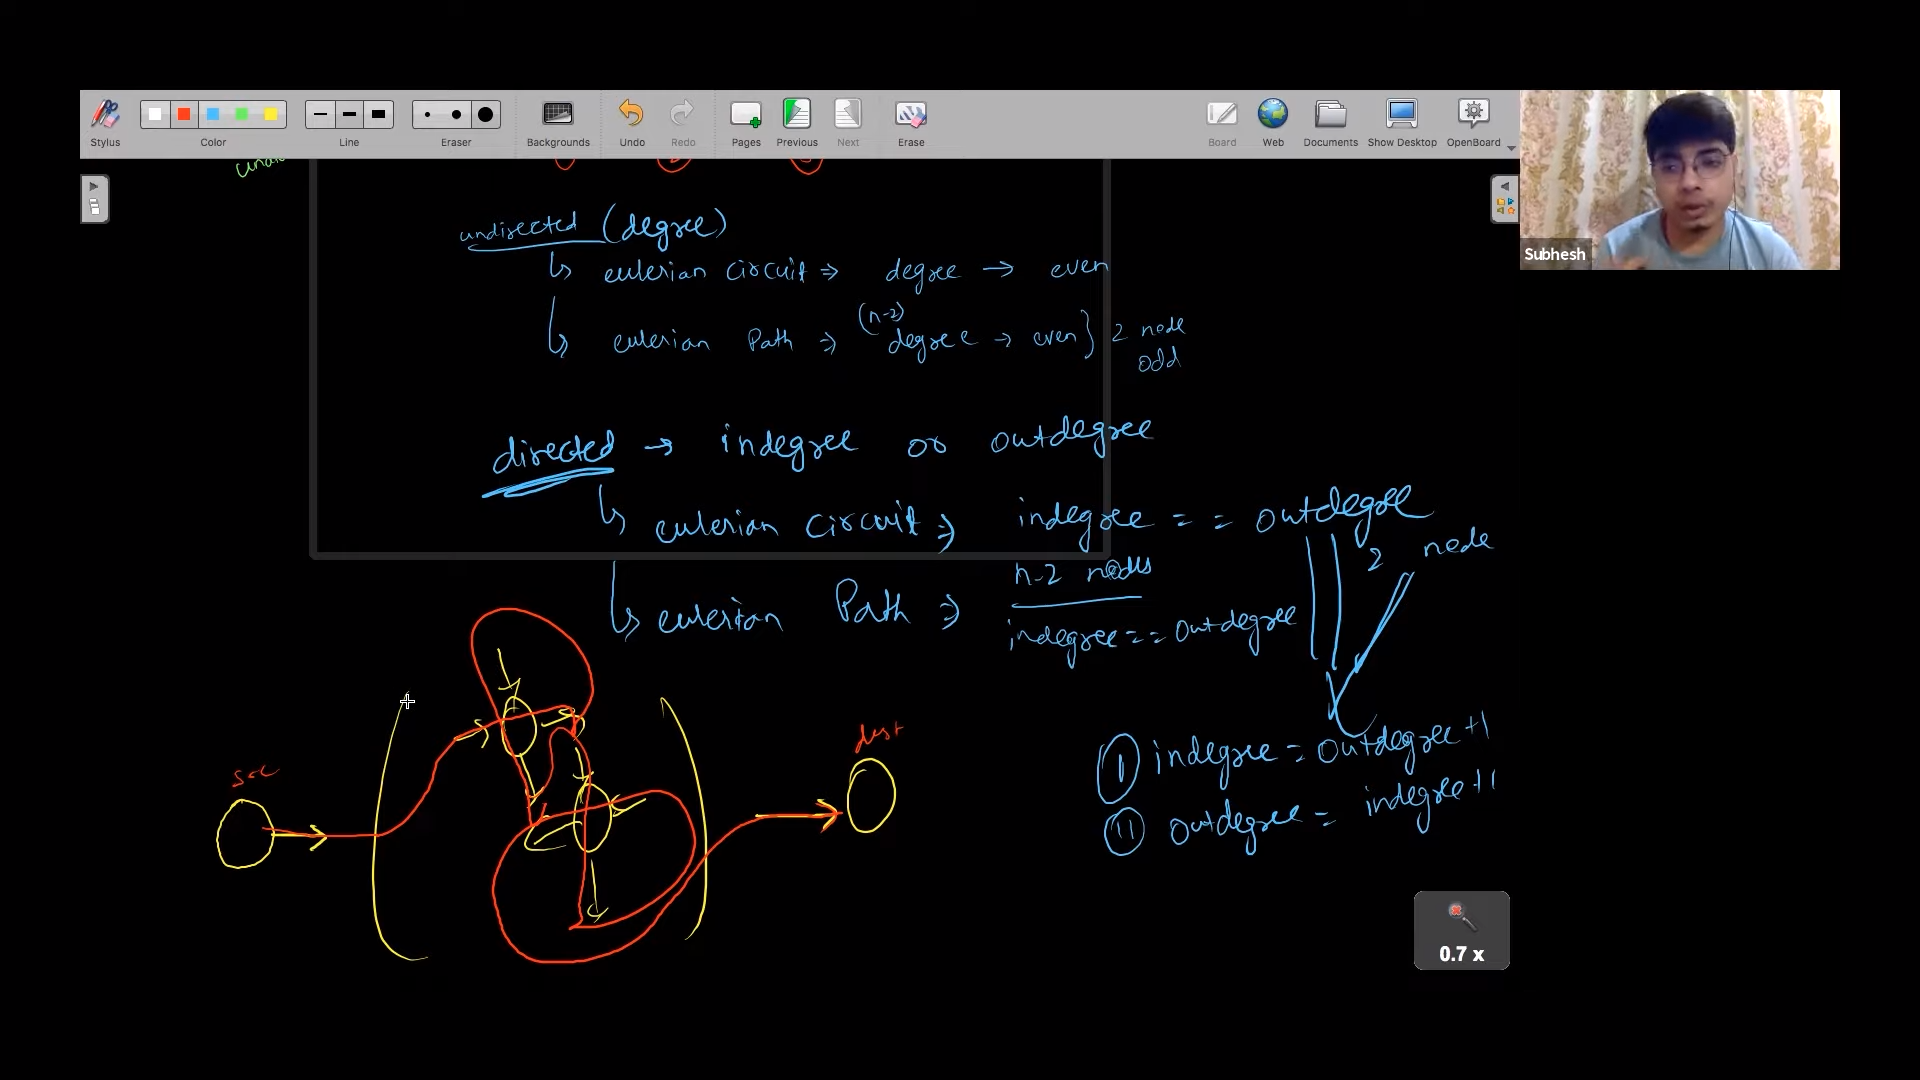 Stylus
Color
Line
Eraser
Backgrounds
Undo
Redo
Pages
Previous
Next
Erase
Board
Web
Documents
Show Desktop
OpenBoard
Subhesh
undirected (degree)
↳ eulerian circuit ⇒ degree → even
↳ eulerian Path ⇒ (n-2) degree → even} 2 node odd
directed → indegree or outdegree
↳ eulerian circuit ⇒ indegree == outdegree
n-2 nodes
2 node
↳ eulerian Path ⇒ indegree == outdegree
(I) indegree = outdegree+1
(II) outdegree = indegree+1
src
dest
0.7 x